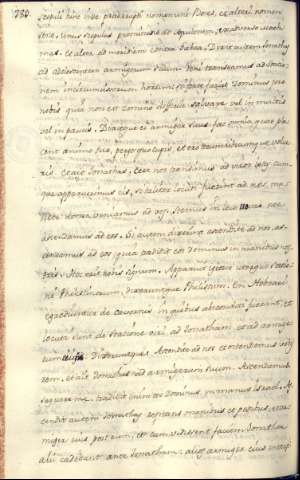 780.
scopuli hinc inde praerupti nomen uni Bores, et alteri nomen
Sene. Unus scopulus prominens ad Aquilonem, ex adverso mach-
mas. et alter ad meridiem contra Gabaa. Dixit autem Jonathas
ad adolescentem armigerum suum. Veni transeamus ad statio-
nem incircumcisorum horum si forte faciat Dominus pro
nobis quia non est Domino difficile salvare vel in multis
vel in paucis. Dixitque ei armiger suus fac omnia quae pla-
cent animo tuo, perge quo cupis, et ero tecum ubicumque volue-
ris. et ait Jonathas. Ecce nos transimus ad viros istos cum-
que apparuerimus eis, si taliter locuti fuerint ad nos, ma-
nete donec veniamus ad vos. stemus in loco nos nec
ascendamus ad eos. Si autem dixerint ascendite ad nos, as-
cendamus ad eos quia tradidit eos dominus in manibus nos-
tris. Hoc erit nobis signum. Apparuit igitur uterque statio-
ni Philistinorum, dixeruntque Philistiim. En Hebraei
egrediuntur de cavernis in quibus absconditi fuerant, et
locuti sunt de statione viri ad Jonatham, et ad armige-
rum eius. Dixeruntque. Ascendite ad nos et ostendemus vobis
rem. et ait Jonathas ad armigerum suum. Ascendamus
sequere me, tradidit enim eos dominus in manus Israel. As-
cendit autem Jonathas reptans manibus et pedibus, et ar-
miger eius post eum, et cum vidissent faciem Jonathae
alii cadebant ante Jonatham: alios armiger eius interfi